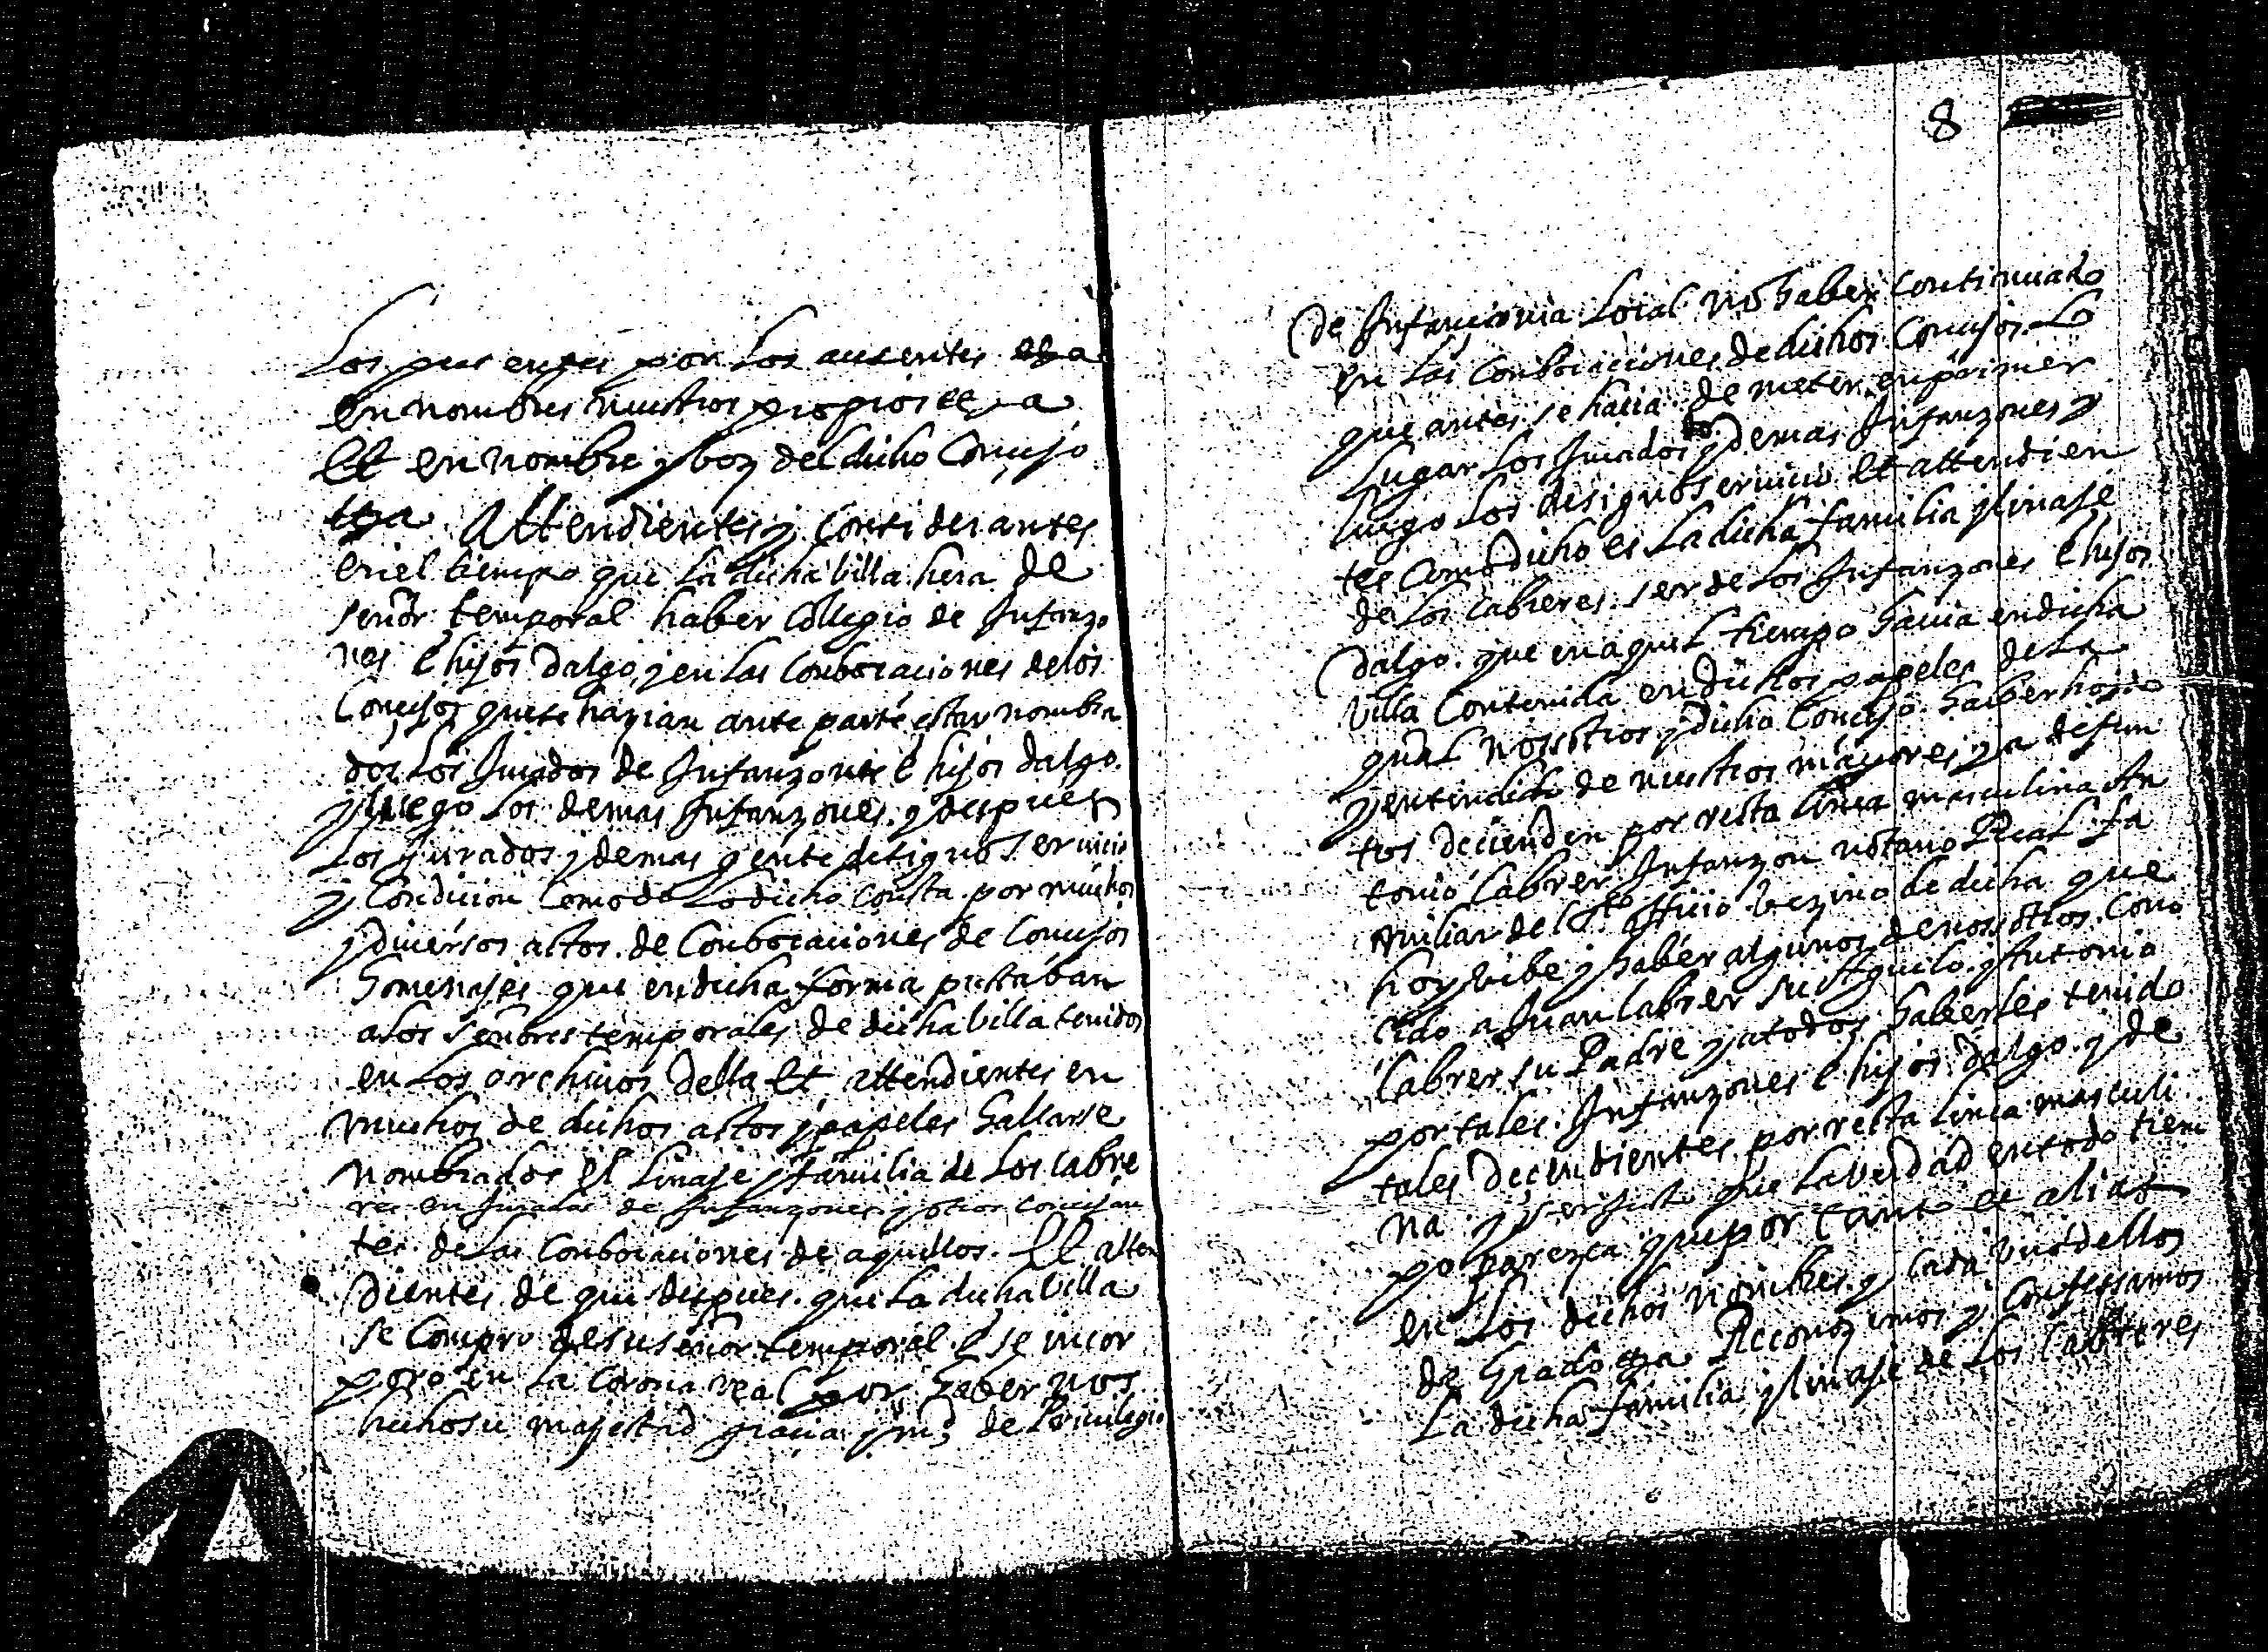 Los presentes por los ausentes etza
En nombres nuestros propios etza
Et en nombre y boz del dicho Concejo
etza Attendientes y considerantes
en el tiempo que la dicha billa hera de
señor temporal haber Collegio de Infanzo
nes e hijos dalgo, y en las conbocaciones de los
Concejos que se hazian ante parte estar nombra
dos los Jurados de Infanzones e hijos dalgo.
y luego los demas Infanzones. y despues
los Jurados y demas gente de signo servicio
y Condicion Como de lo dicho consta por muchos
y diversos actos de Conbocaciones de Concejos
homenajes que en dicha forma prestaban
a los señores temporales de dicha billa tenidos
en los archivos della Et attendientes en
muchos de dichos actos y papeles hallarse
nombrados el linaje y familia de los Labre
res en Jurados de Infanzones y otros concejan
tes de las Conbocaciones de aquellos. Et atten
dientes de que despues que la dicha Villa
se Compro de su señor temporal e se incor
poro en la Corona real por habernos
hecho su majestad gracia y md de Privilegio
8
de Infancionia Local no haber continuado
en las conbocaciones de dichos Concejos Lo
que antes se hacia de meter en primer
Lugar los Jurados y demas Infanzones y
luego los de signo servicio et attendien
tes Como dicho es La dicha familia y linaje
de los Labreres ser de los Infanzones e hijos
dalgo que en aquel tiempo havia en dicha
Villa Contenida en dichos papeles de La
qual nosotros y dicho Concejo haber hoydo
y entendido de nuestros mayores ya defun
tos decienden por recta linea masculina An
tonio Labrer Infanzon notario Real fa
miliar del Sto officio bezino de dicha que
hoy bibe y haber algunos de nosotros cono
cido a Juan Labrer su Aguelo y Antonio
Labrer su Padre y a todos haberles tenido
por tales Infanzones e hijos dalgo. y de
tales decendientes por recta linea masculi
na y ser justo que la verdad en todo tiem
po parezca que por tanto et alias
en los dichos nombres y cada uno dellos
de Grado etza Reconozemos y Confessamos
La dicha familia y linaje de los Labreres